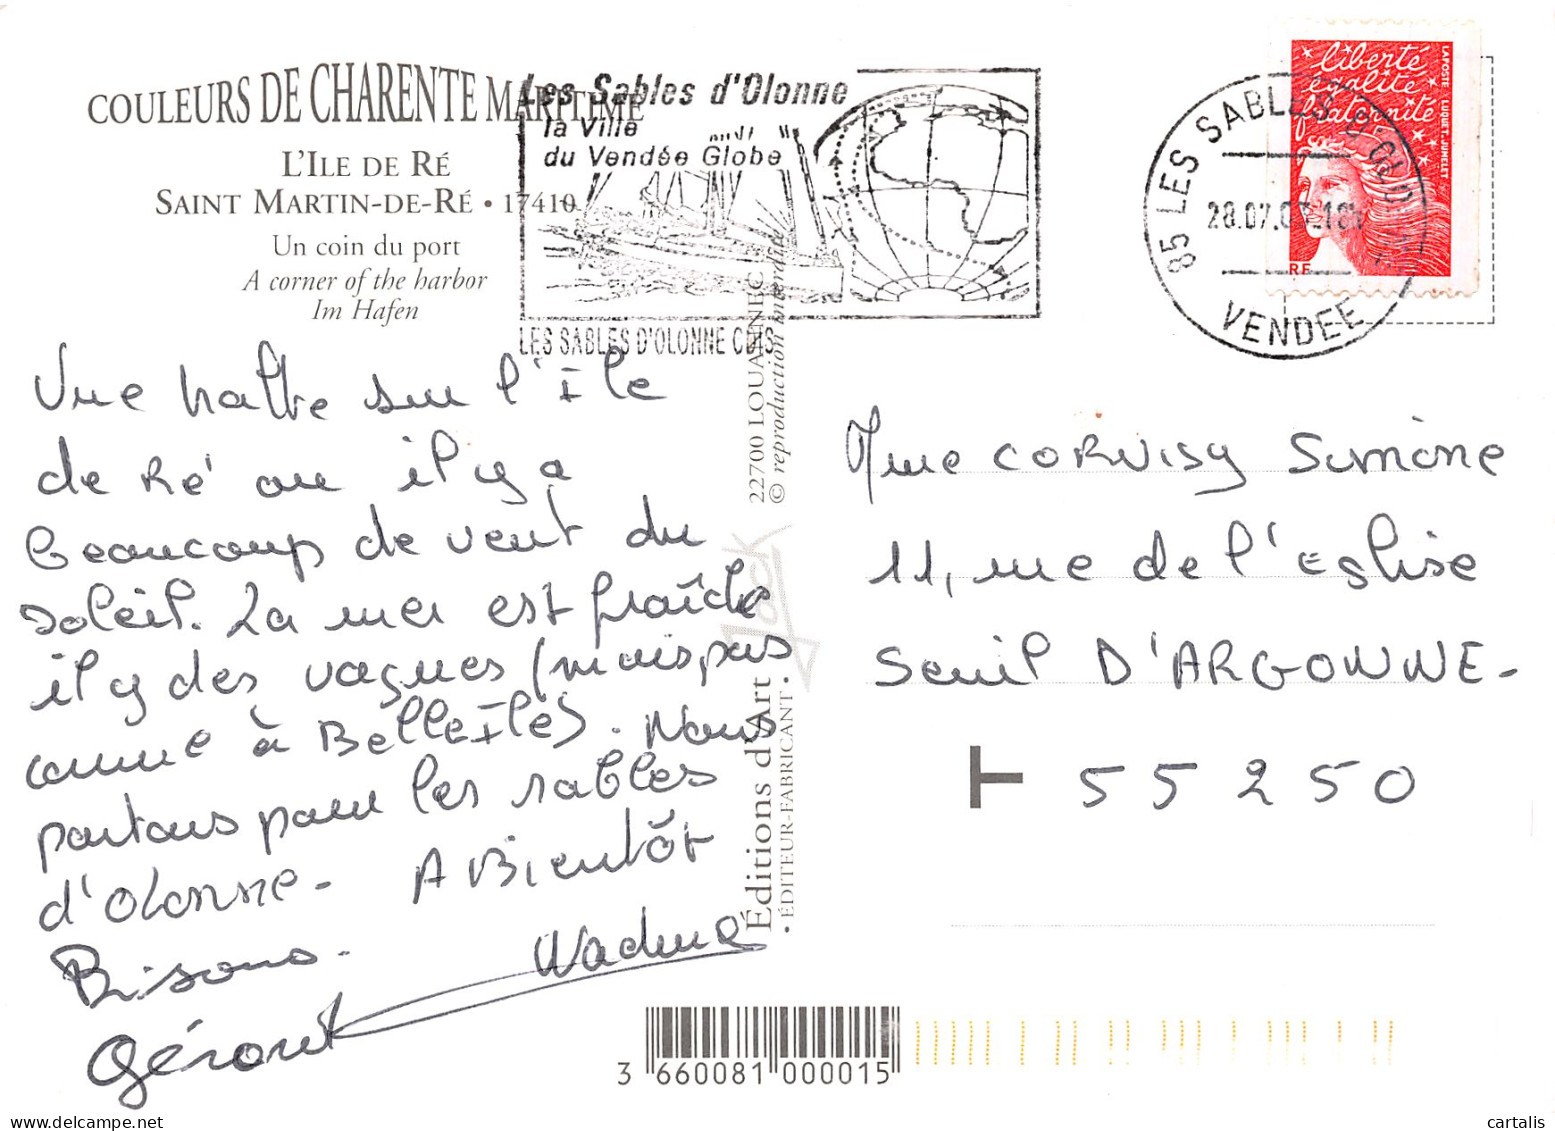 COULEURS DE CHARENTE MARITIME
L'ILE DE RÉ
SAINT MARTIN-DE-RÉ • 17410
Un coin du port
A corner of the harbor
Im Hafen
Les Sables d'Olonne
la Ville
du Vendée Globe
LES SABLES D'OLONNE CDIS
85 LES SABLES D'OLONNE
28.07.
VENDEE
liberté
égalité
fraternité
LAPOSTE LUQUET.JUMELET
RF
Une halte sur l'Ile
de Ré ou il y a
beaucoup de vent du
soleil. La mer est fraîche
il y des vagues (mais pas
comme à BelleIle). Nous
partons pour les sables
d'olonne - A Bientôt
Bisous.
Nadine
Géront
Éditions d'Art Jack 22700 LOUANNEC
• ÉDITEUR-FABRICANT • © reproduction interdite
Mme CORVISY Simone
11, rue de l'Eglise
Seuil D'ARGONNE -
55250
3 660081 000015
cartalis